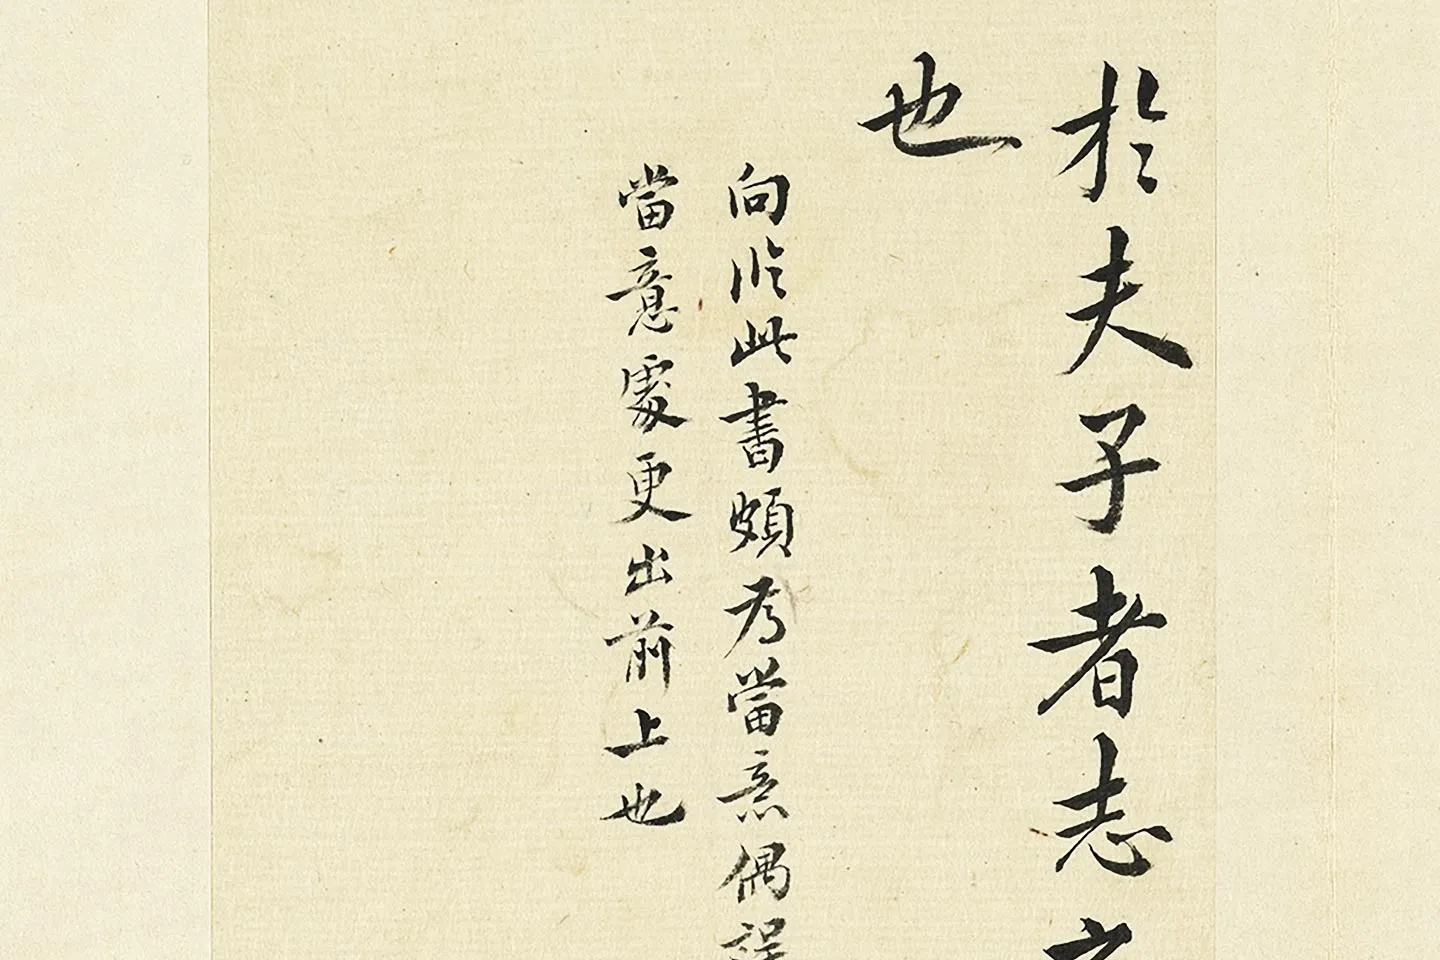 於夫子者志
也
向臨此書頗為當意偶誤
當意處更出前上也